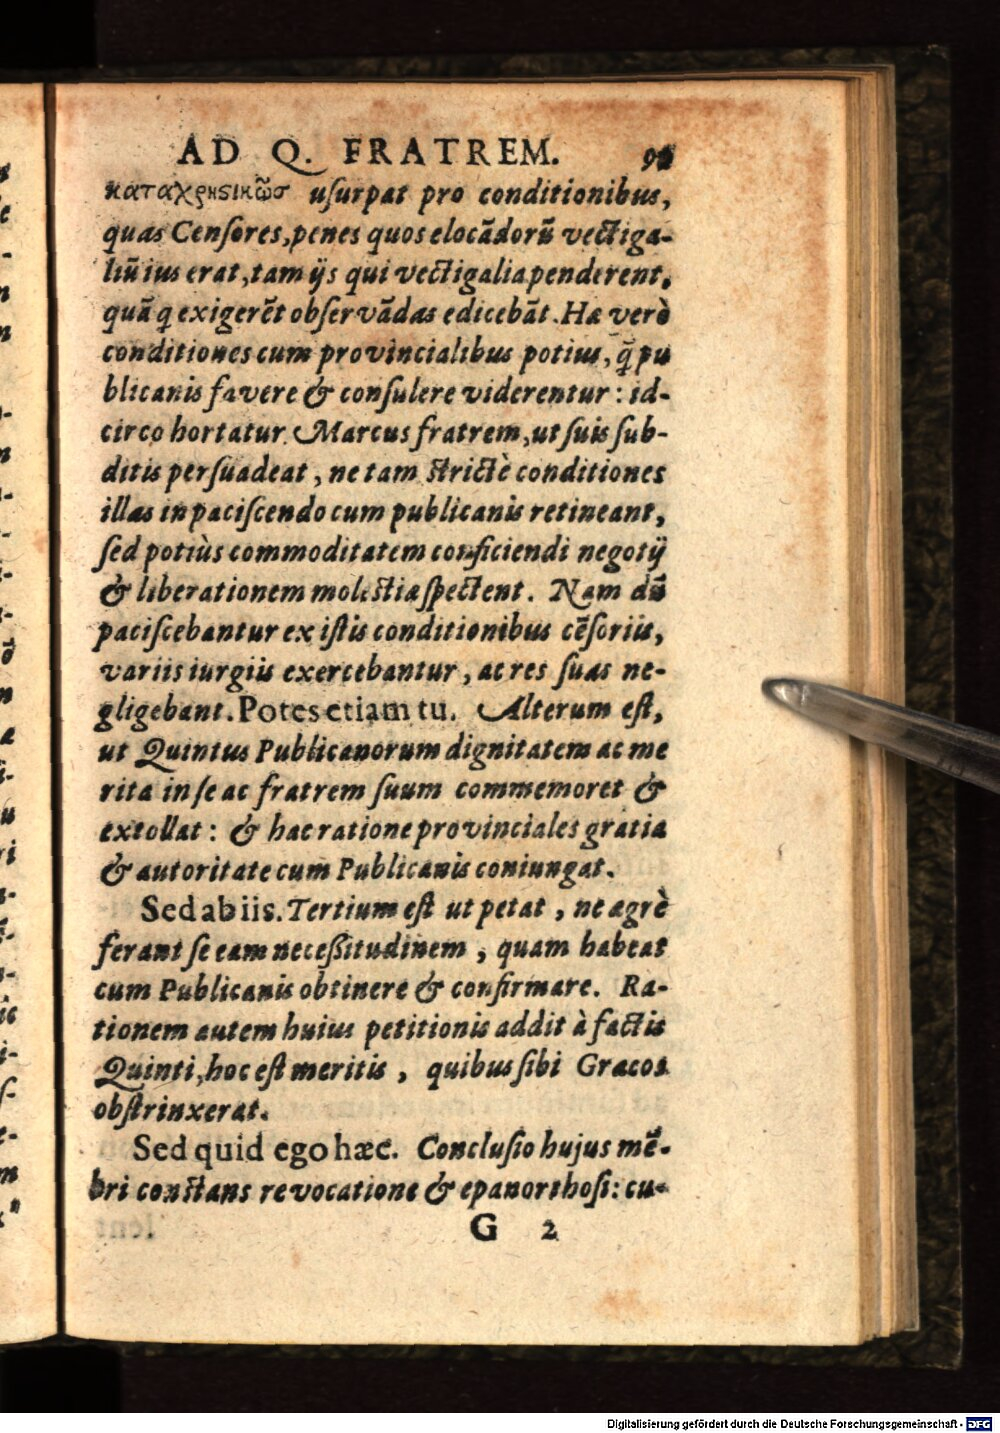 AD Q. FRATREM.
καταχρηςικῶσ uſurpat pro conditionibus,
quas Cenſores, penes quos elocādorū vectiga-
liū ius erat, tam ijs qui vectigalia penderent,
quā q exigerēt obſervādas edicebāt. Hæ verò
conditiones cum provincialibus potius, q̃ pu
blicanis favere & conſulere viderentur: id-
circo hortatur Marcus fratrem, ut ſuis ſub-
ditis perſuadeat, ne tam ſtrictè conditiones
illas in paciſcendo cum publicanis retineant,
ſed potiùs commoditatem conficiendi negotij
& liberationem moleſtiæ ſpectent. Nam dū
paciſcebantur ex iſtis conditionibus cēſoriis,
variis iurgiis exercebantur, ac res ſuas ne-
gligebant. Potes etiam tu. Alterum eſt,
ut Quintus Publicanorum dignitatem ac me
rita in ſe ac fratrem ſuum commemoret &
extollat: & hac ratione provinciales gratia
& autoritate cum Publicanis coniungat.
Sed ab iis. Tertium eſt ut petat, ne agrè
ferant ſe eam neceßitudinem, quam habeat
cum Publicanis obtinere & confirmare. Ra-
tionem autem huius petitionis addit à factis
Quinti, hoc eſt meritis, quibus ſibi Græcos
obſtrinxerat.
Sed quid ego hæc. Concluſio hujus mē-
bri conſtans revocatione & epanorthoſi: cu-
G 2
Digitalisierung gefördert durch die Deutsche Forschungsgemeinschaft - DFG